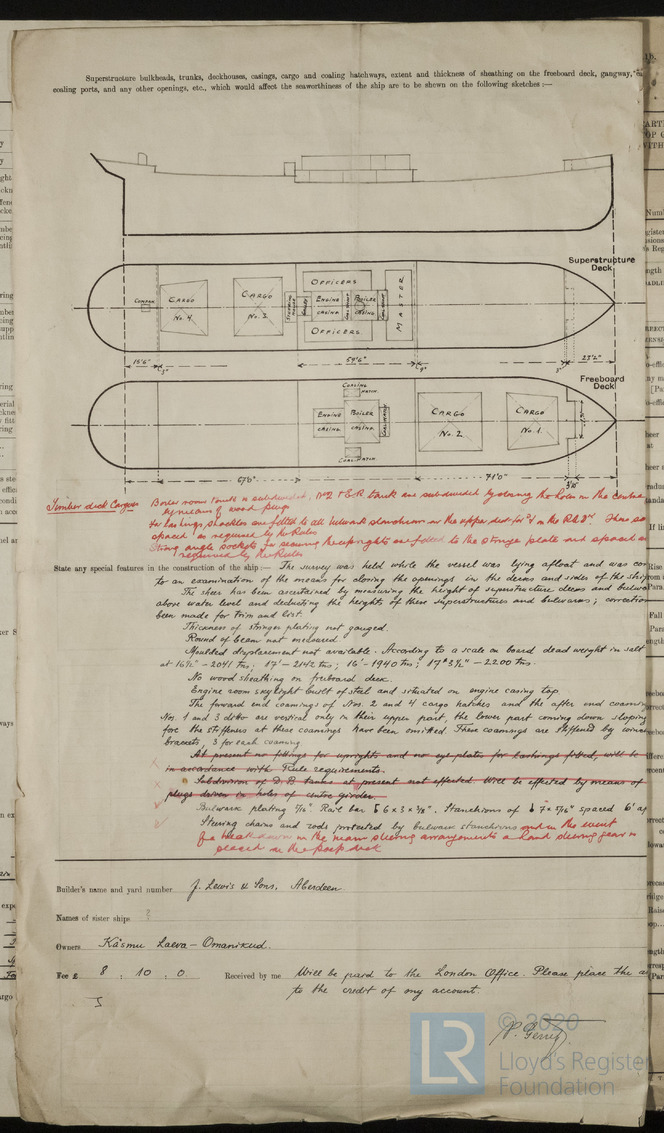 Superstructure bulkheads, trunks, deckhouses, casings, cargo and coaling hatchways, extent and thickness of sheathing on the freeboard deck, gangway,
coaling ports, and any other openings, etc., which would affect the seaworthiness of the ship are to be shewn on the following sketches :—
Superstructure
Deck
OFFICERS
CARGO
No. 4.
CARGO
No. 3.
ENGINE
CASING
BOILER
CASING
MASTER
OFFICERS
15'6"
59'6"
23'2"
Freeboard
Deck
COALING
HATCH
ENGINE
CASING
BOILER
CASING
CARGO
No. 2
CARGO
No. 1.
COAL. HATCH
67'0"
71'0"
Timber deck Cargoes
Boiler room tank is subdivided, No 2 & E.R. tank are subdivided by closing the holes in the centre
by means of wood plugs
For lashings, shackles are fitted to all bulwark stanchions in the upper deck
spaced as required by the Rules
Strong angle sockets for securing the uprights are fitted to the stringer plate and spaced as
required by the Rules
State any special features in the construction of the ship :— The survey was held while the vessel was lying afloat and was
to an examination of the means for closing the openings in the decks and sides of the ship
The sheer has been ascertained by measuring the height of superstructure decks and
above water level and deducting the heights of these superstructures and bulwarks ; correction
been made for trim and list.
Thickness of stringer plating not gauged.
Round of beam not measured.
Moulded displacement not available. According to a scale on board dead weight in salt
at 16½" – 2041 tns; 17' – 2142 tns; 16' – 1940 tns; 17' 3½" – 2200 tns.
No wood sheathing on freeboard deck.
Engine room skylight built of steel and situated on engine casing top.
The forward end coamings of Nos. 2 and 4 cargo hatches and the after end coaming
Nos. 1 and 3 ditto are vertical only in their upper part, the lower part coming down sloping
fore the stiffeners at these coamings have been omitted. These coamings are stiffened by
brackets, 3 for each coaming
At present no fittings for uprights and no eye plates for lashings fitted, will be
in accordance with Rule requirements.
Subdivision of D.B. tanks at present not effected. Will be effected by means of
plugs driven in holes of centre girder.
Bulwark plating 5/16". Rail bar 6 x 3 x 3/8". Stanchions of 7" x 5/16" spaced 6'
Steering chains and rods protected by bulwark stanchions and in the event
of a breakdown in the main steering arrangements a hand steering gear is
placed on the poop deck
Builder's name and yard number J. Lewis & Sons, Aberdeen
Names of sister ships ?
Owners Käsmu Laeva-Omanikud.
Fee £ 8 : 10 : 0 Received by me Will be paid to the London Office. Please place the
to the credit of my account.
© 2020
LR
Lloyd's Register
Foundation